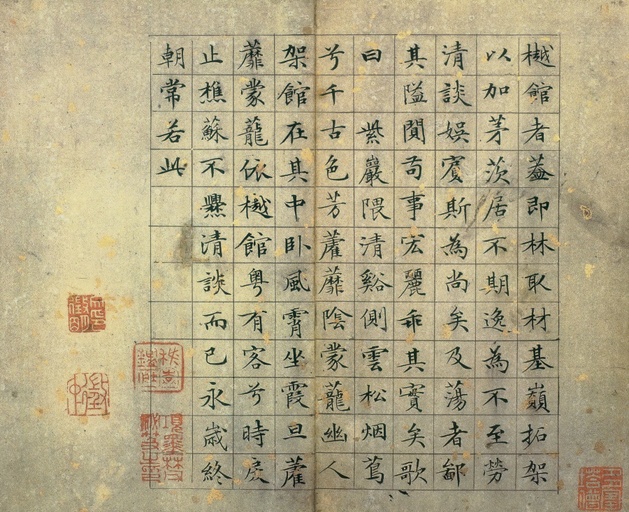 樾館者蓋即林取材基嶺拓架
以加茅茨居不期逸為不至勞
清談娛賓斯為尚矣及蕩者鄙
其隘闃苟事宏麗乖其實矣歌
曰 紫巖隈清谿側雲松烟蔦
兮千古色芳藿蘼陰蒙蘢幽人
架館在其中卧風霄坐霞旦藿
蘼蒙蘢依樾館粵有客兮時戾
止樵蘇不爨清談而已永歲終
朝常若此